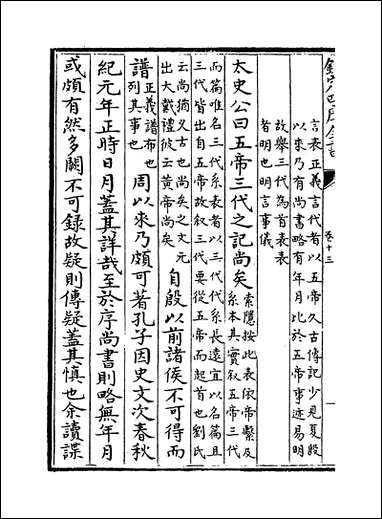 欽定四庫全書
卷十三
一
言表正義言代者以五帝久古傳記少見夏殷
以來乃有尚書略有年月比於五帝事迹易明
故舉三代為首表表
者明也明言事儀
太史公曰五帝三代之記尚矣
索隱按此表依帝繫及
系本其實叙五帝三代
而篇唯名三代系表者以三代代系長遠宜以名篇且
三代皆出自五帝故叙三代要從五帝而起首也劉氏
云尚猶久古也尚矣之文元
出大戴禮彼云黄帝尚矣
自殷以前諸侯不可得而
譜
正義譜布也
列其事也
周以來乃頗可著孔子因史文次春秋
紀元年正時日月蓋其詳哉至於序尚書則略無年月
或頗有然多闕不可録故疑則傳疑蓋其慎也余讀諜